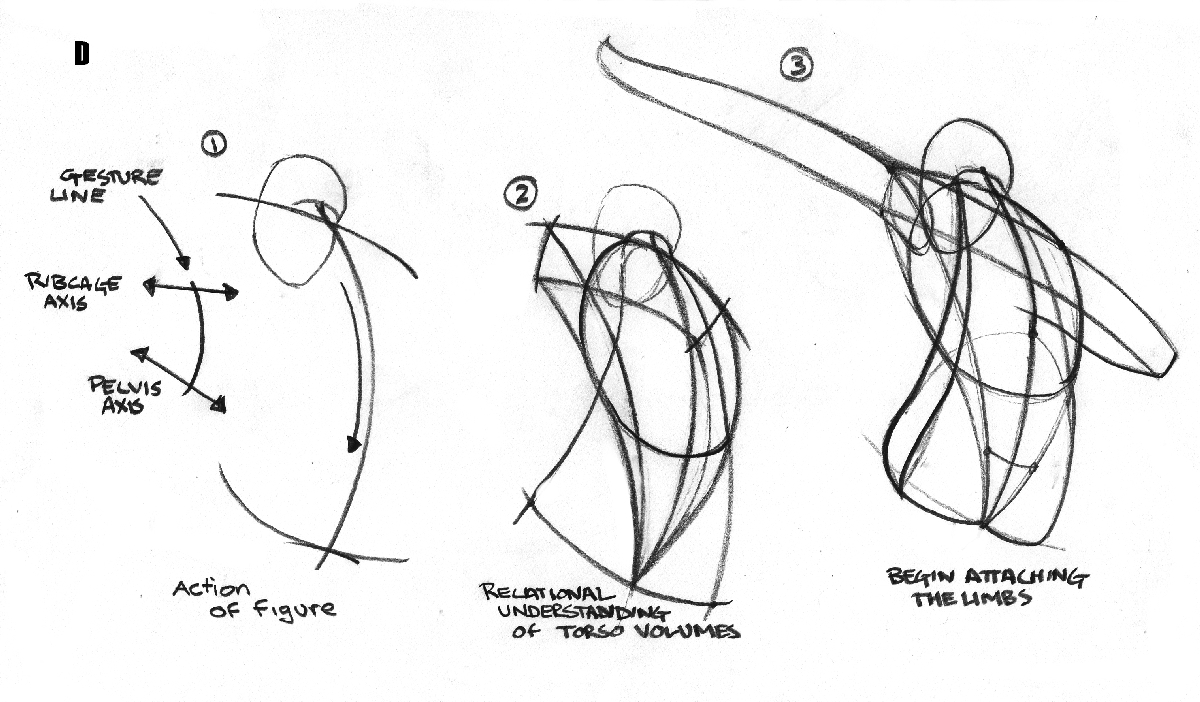 D
①
GESTURE
LINE
RIBCAGE
AXIS
PELVIS
AXIS
Action
of Figure
②
RELATIONAL
UNDERSTANDING
OF TORSO VOLUMES
③
BEGIN ATTACHING
THE LIMBS